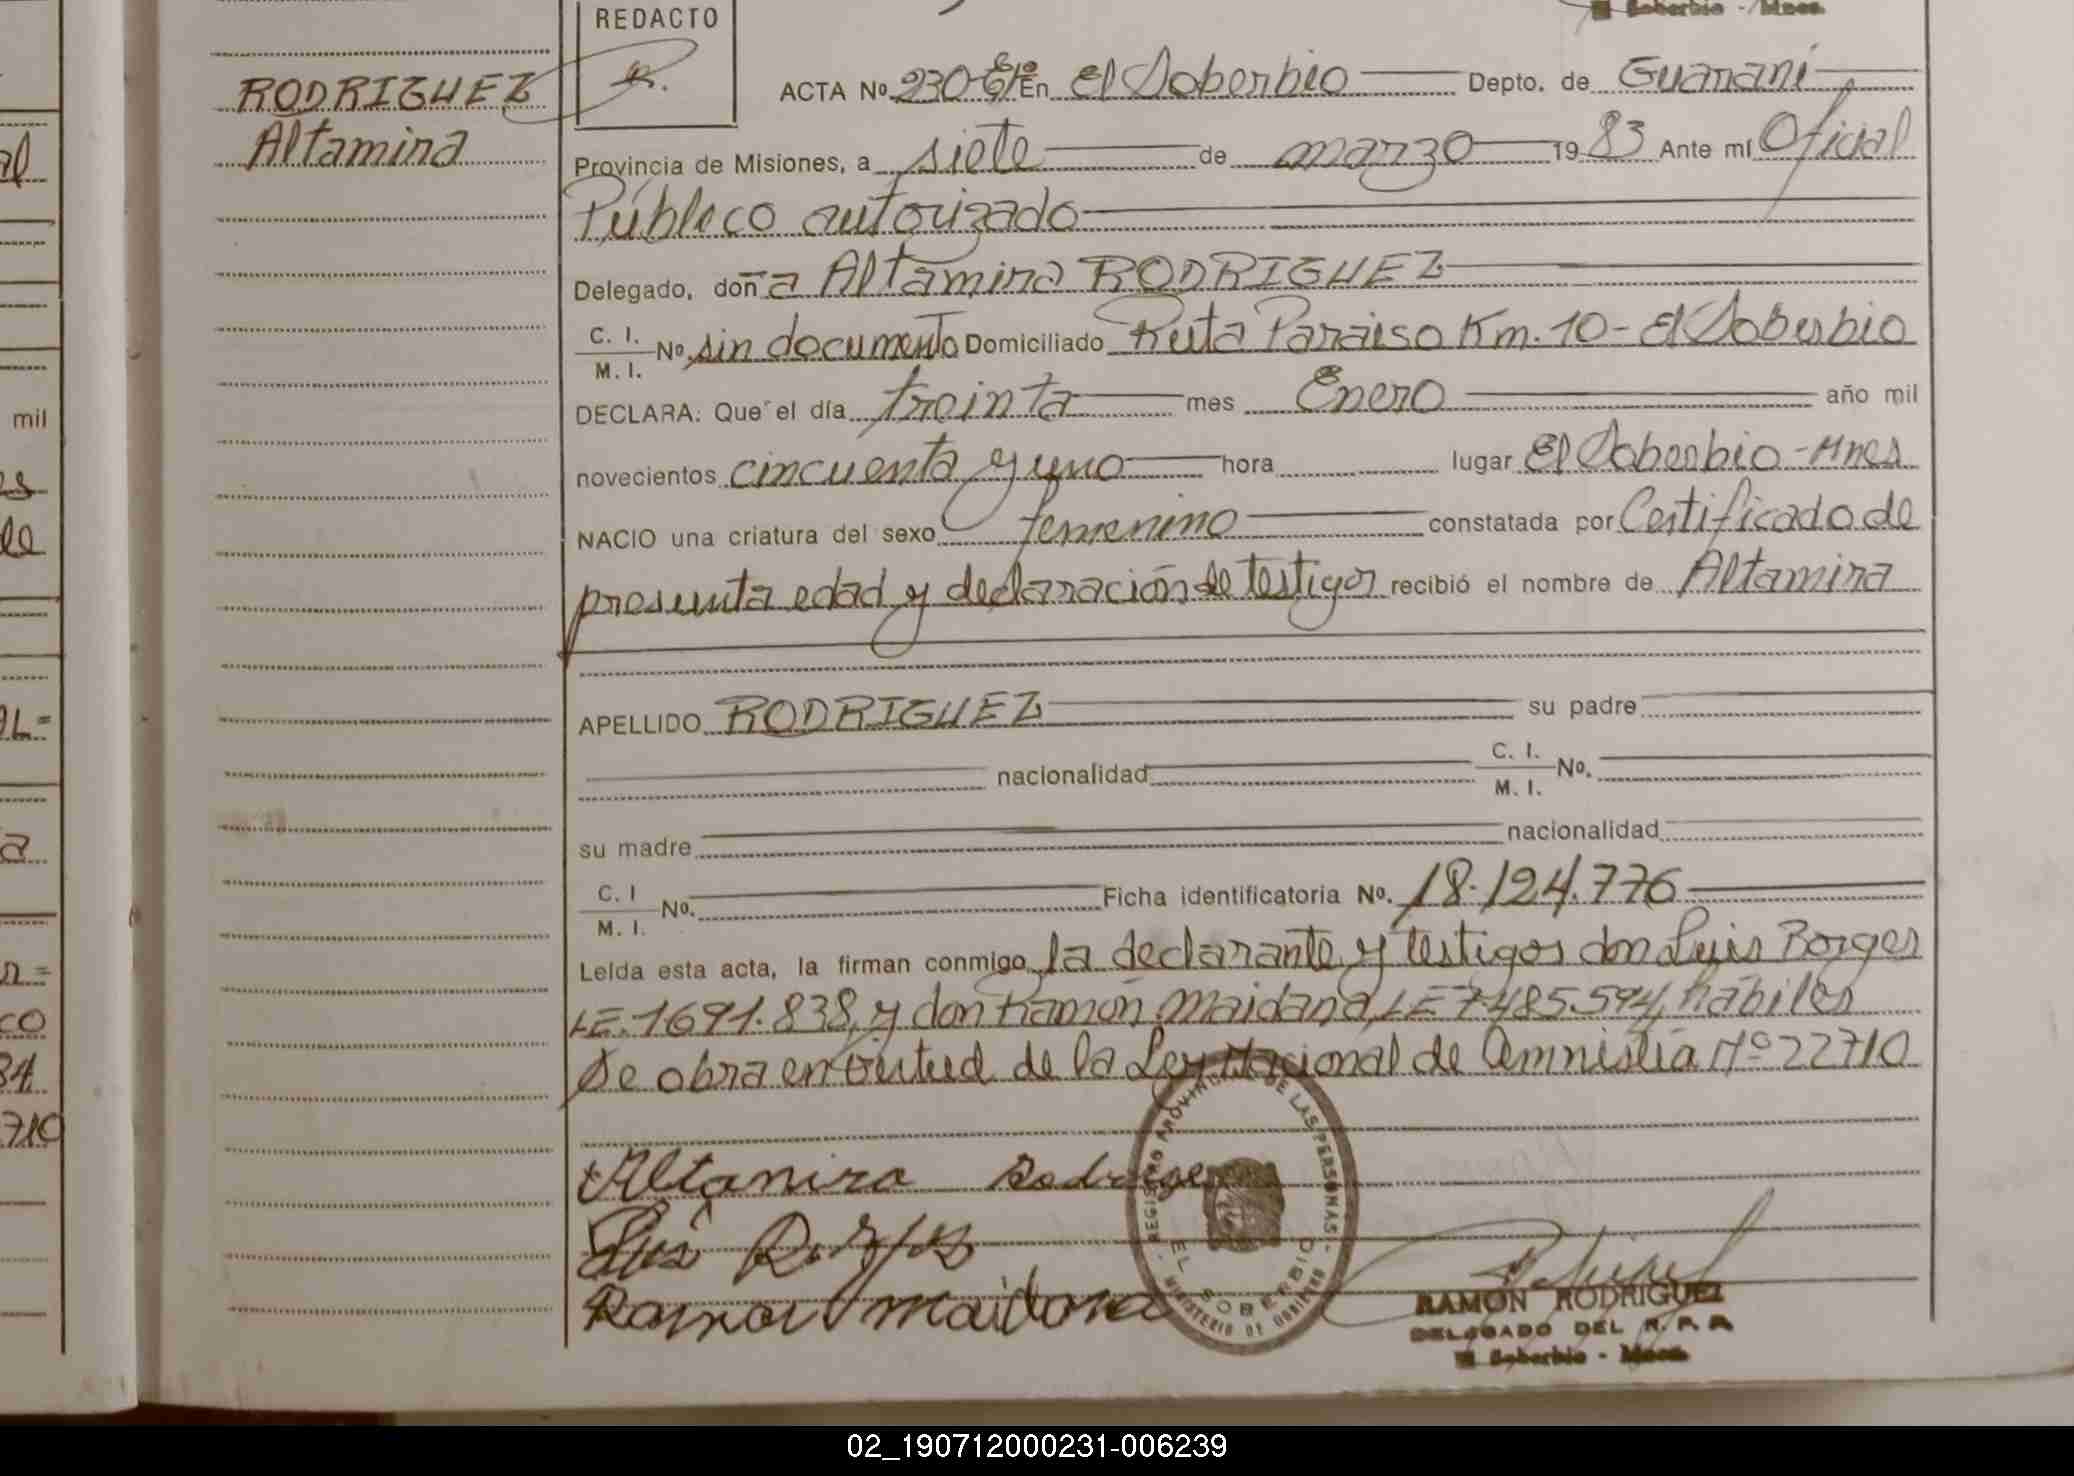 Soberbio - Mnes.
REDACTO
RODRIGUEZ
Altamira
ACTA Nº 230 En El Soberbio Depto. de Guaraní
Provincia de Misiones, a siete de marzo 1983 Ante mí Oficial
Público autorizado
Delegado, doña Altamira RODRIGUEZ
C. I. M. I. Nº. sin documento Domiciliado Ruta Paraiso Km. 10 - El Soberbio
DECLARA: Que el día treinta mes Enero año mil
novecientos cincuenta y uno hora lugar El Soberbio - Mnes
NACIO una criatura del sexo femenino constatada por Certificado de
presunta edad y declaración de testigos recibió el nombre de Altamira
APELLIDO RODRIGUEZ su padre
nacionalidad C. I. M. I. No.
su madre nacionalidad
C. I M. I. No. Ficha identificatoria No. 18.124.776
Leída esta acta, la firman conmigo la declarante y testigos don Luis Borges
LE. 1691.838, y don Ramón Maidana, LE 7.485.594, hábiles
Se obra en virtud de la Ley Nacional de Amnistía Nº 22710
Altamira Rodrige
Ramon Maidana
REGISTRO PROVINCIAL DE LAS PERSONAS - MINISTERIO DE GOBIERNO -
EL SOBERBIO
RAMON RODRIGUEZ
DELEGADO DEL R. P. P.
El Soberbio - Mnes.
mil
710
02_190712000231-006239